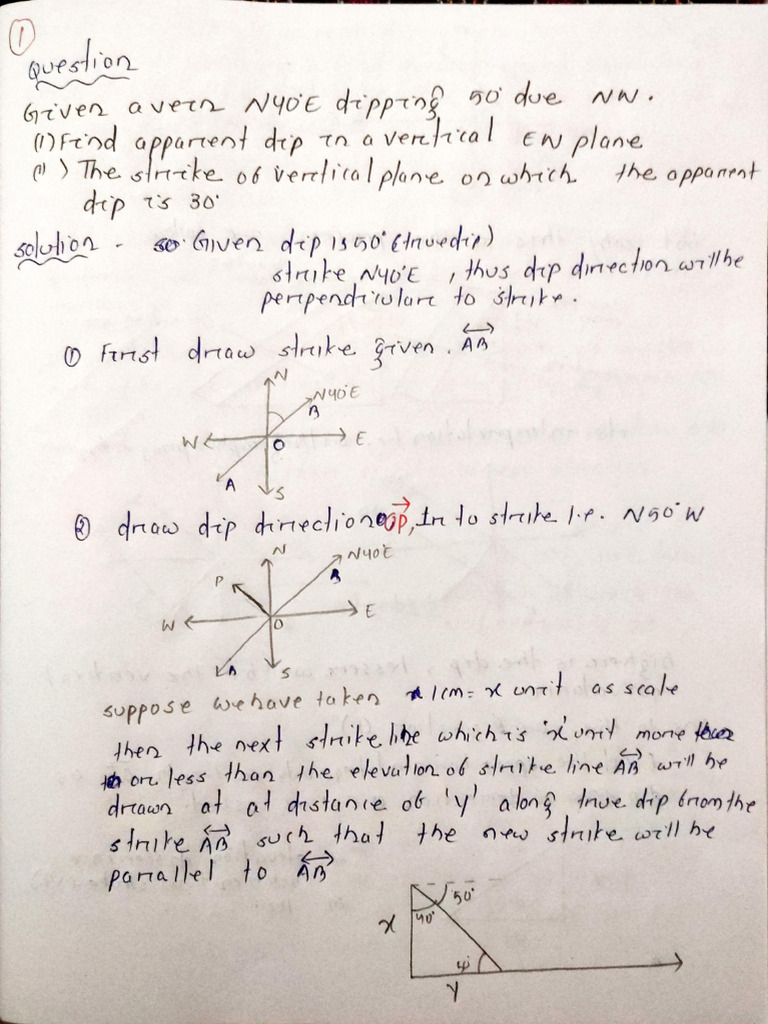 1
Question
Given a vein N40°E dipping 50° due NW.
(i) Find apparent dip in a vertical EW plane
(ii) The strike of vertical plane on which the apparent
dip is 30°
solution - Given dip is 50° (true dip)
strike N40°E, thus dip direction will be
perpendicular to strike.
① First draw strike given. AB
N
N40°E
B
W
E
O
A
S
② draw dip direction OP, ⊥r to strike i.e. N50°W
N
N40°E
P
B
W
E
O
A
S
suppose we have taken 1cm = x unit as scale
then the next strike line which is 'x' unit more
or less than the elevation of strike line AB will be
drawn at at distance of 'y' along true dip from the
strike AB such that the new strike will be
parallel to AB
50°
40°
x
y